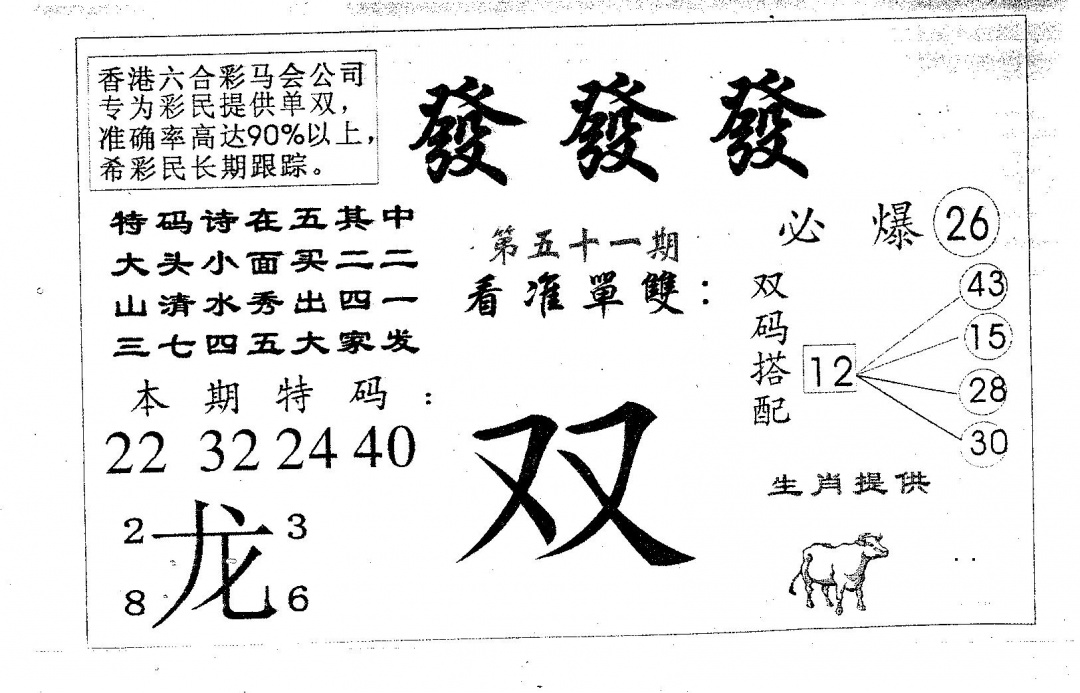 香港六合彩马会公司
专为彩民提供单双，
准确率高达90%以上，
希彩民长期跟踪。
發發發
特码诗在五其中
大头小面买二二
山清水秀出四一
三七四五大家发
本期特码：
22 32 24 40
2 龙 3
8 6
第五十一期
看准單雙：
双
必爆 26
双码搭配 12
43
15
28
30
生肖提供